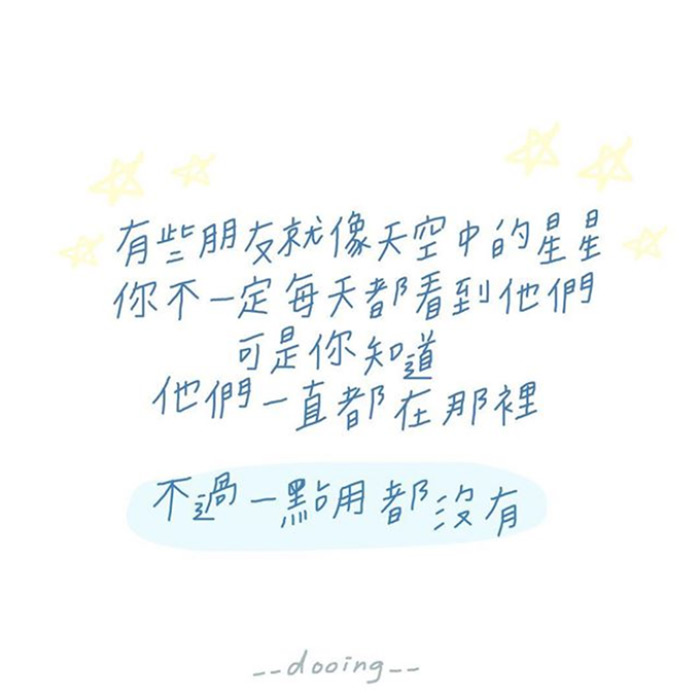 有些朋友就像天空中的星星
你不一定每天都看到他們
可是你知道
他們一直都在那裡
不過一點用都沒有
--dooing--